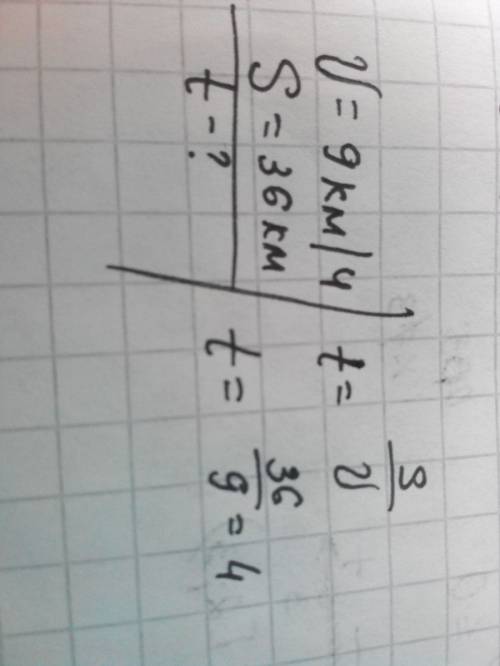 V = 9 км/ч
S = 36 км
t - ?
t = S/V
t = 36/9 = 4